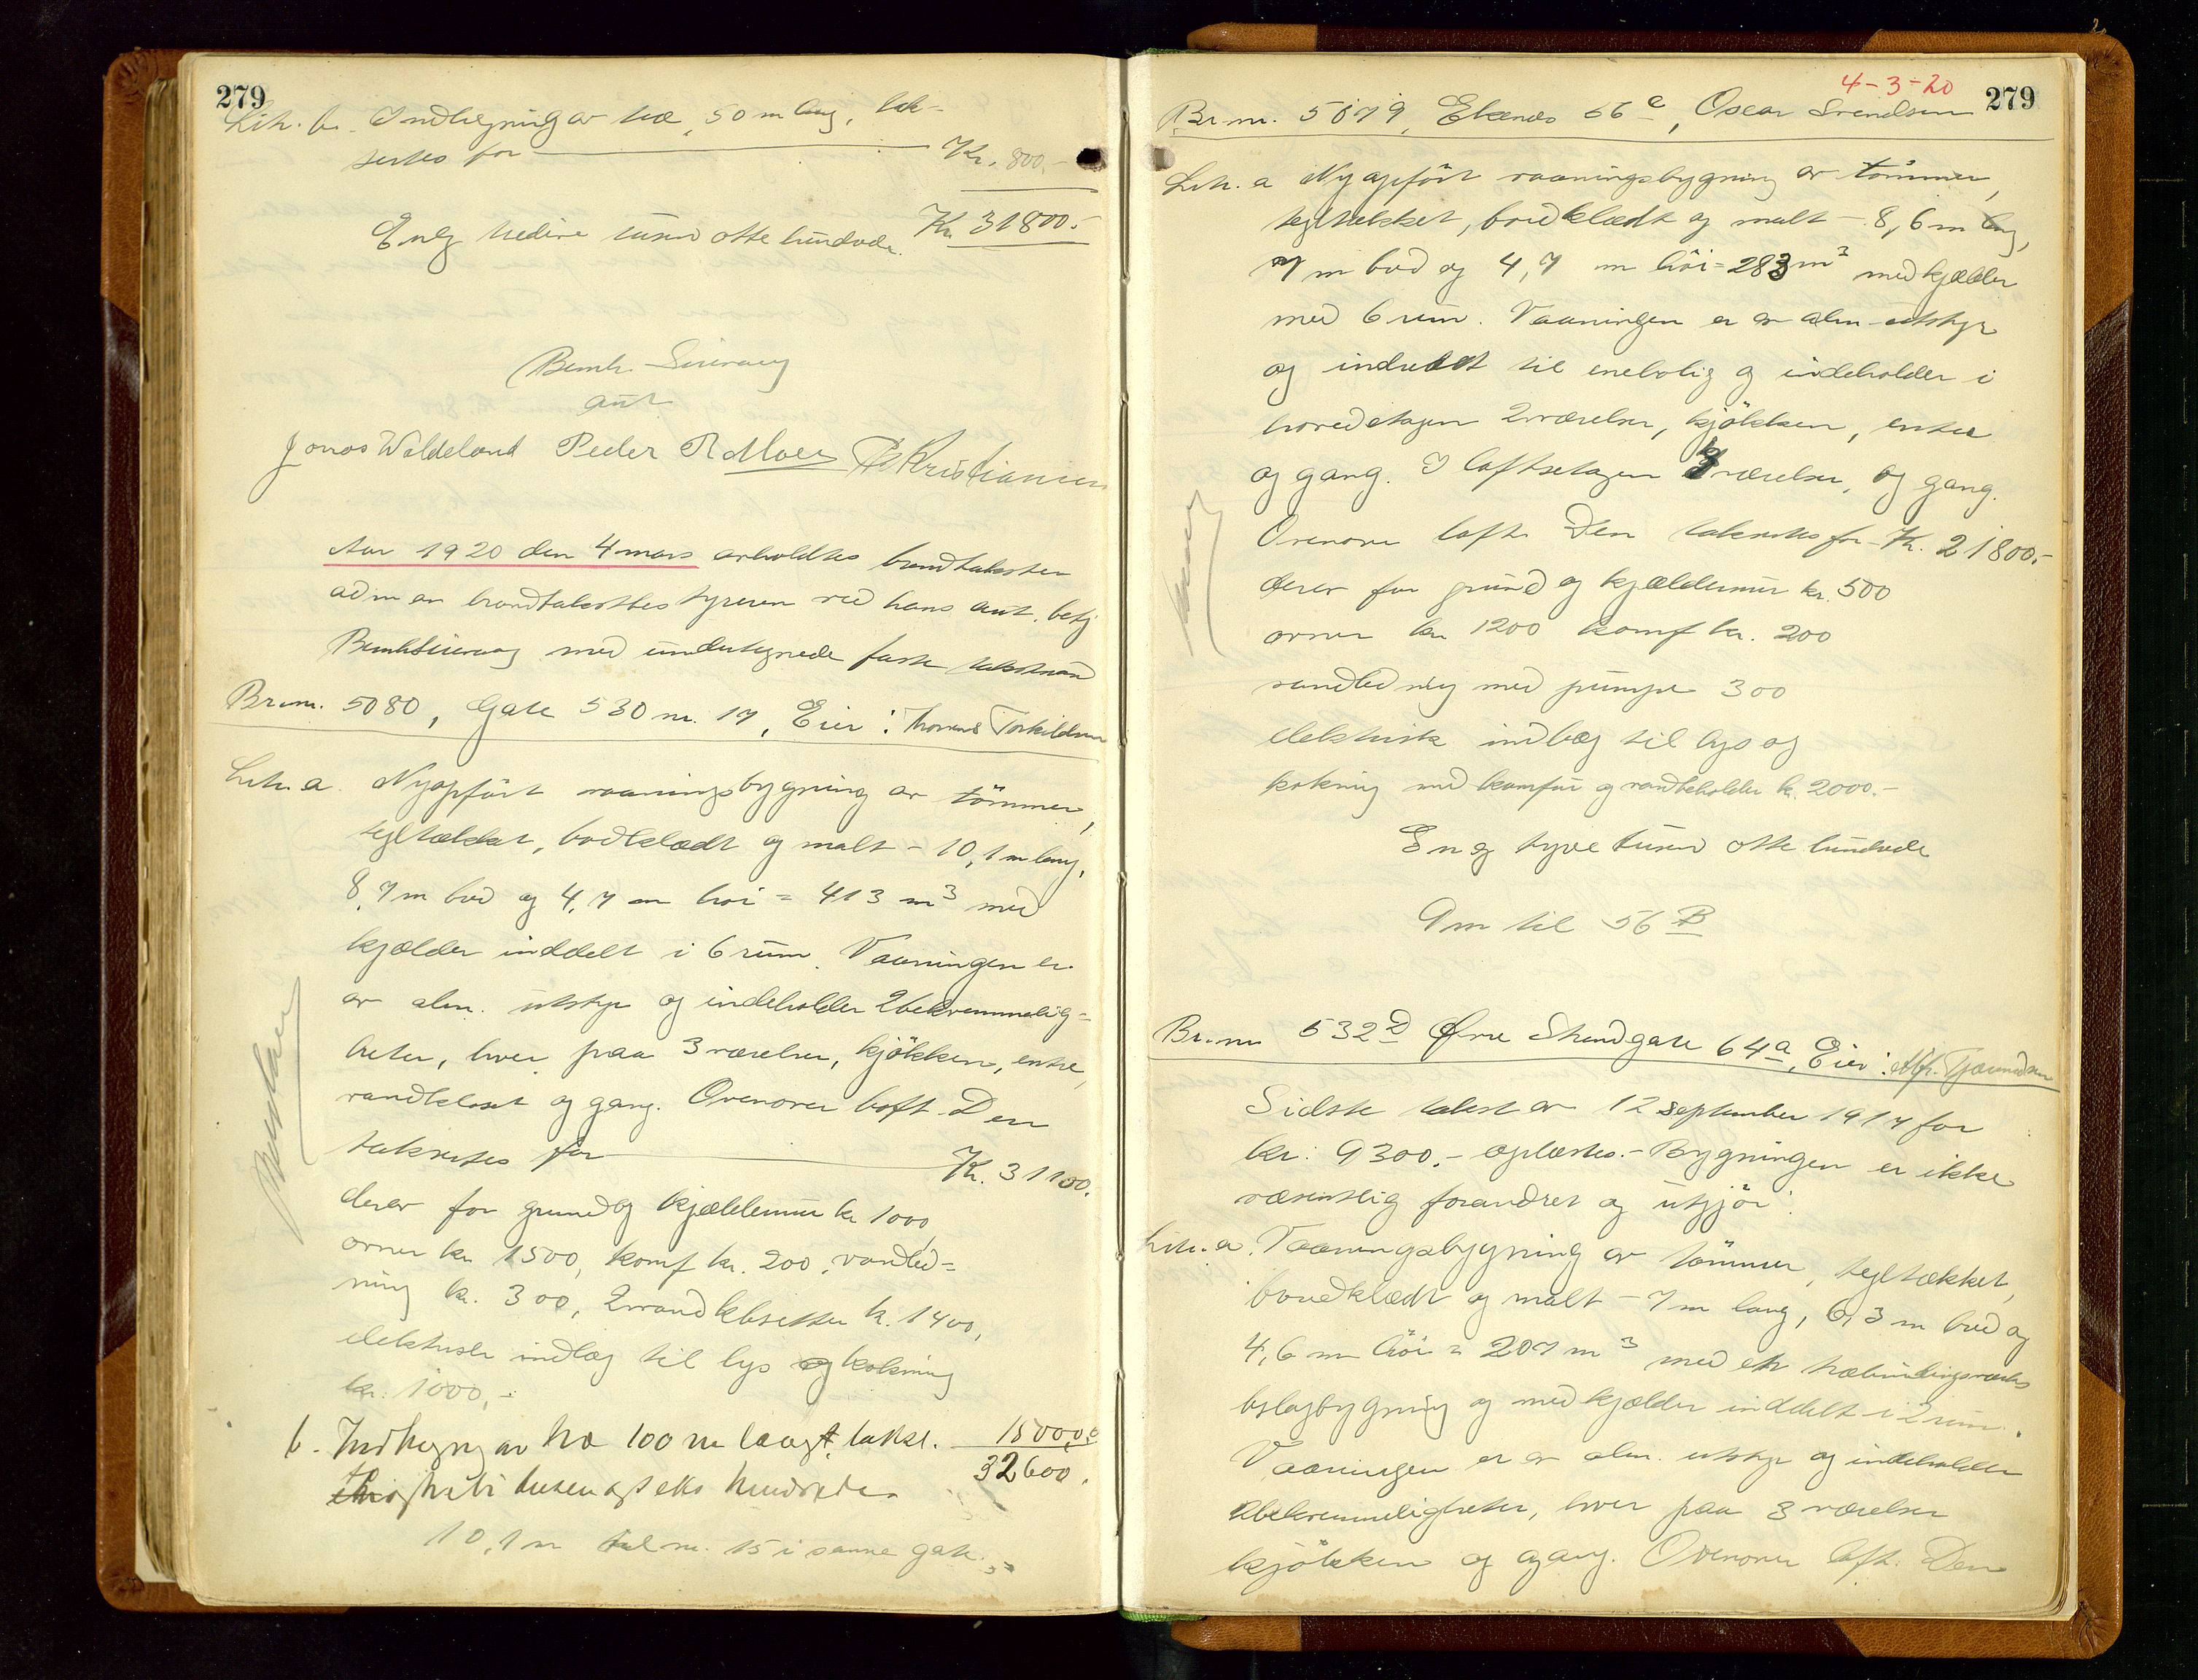 279
Litr. b. Indhegning av træ, 50 m lang, tak-
sertes for Kr. 800.-
Kr. 31800.-
En og tredive tusen otte hundrede
Bernh. Sivervaag
aut
Jonas Waldeland Peder R Moe P Kristiansen
Aar 1920 den 4 mars avholdtes brandtakster
adm av brandtakstbestyreren ved hans aut. betj
Bernh Sivervaag med undertegnede faste takstmænd
Br.nr. 5080, Gate 530 nr. 17, Eier: Thomas Torkildsen
Litr. a. Nyopført vaaningsbygning av tömmer,
tegltækket, bordklædt og malt - 10,1 m lang,
8,7 m bred og 4,7 m høi = 413 m³ med
kjælder inddelt i 6 rum. Vaaningen er
av alm. utstyr og indeholder 2 bekvemmelig-
heter, hver paa 3 værelser, kjøkken, entre,
vandkloset og gang. Ovenover loft. Den
taksertes for Kr. 31100.
derav for grund og kjældermur kr 1000,
ovner kr 1500, komf kr. 200, vandled-
ning kr. 300, 2 vandklosetter kr. 1400,
elektrisk indlæg til lys og kokning
kr. 1000,-
b. Indhegng av træ 100 m langt takst. 1500,00
32600.
og tretti to tusen og seks hundrede
10,1 m til nr. 15 i samme gate.
4-3-20
279
Br.nr. 5079, Ekenæs 56 c, Oscar Svendsen
Litr. a Nyopført vaaningsbygning av tömmer,
tegltækket, bordklædt og malt - 8,6 m lang,
7 m bred og 4,7 m høi = 283 m³ med kjælder
med 6 rum. Vaaningen er av alm utstyr
og indredet til enebolig og indeholder i
hovedetagen 2 værelser, kjøkken, entre
og gang. I loftsetagen 3 værelser, og gang.
Ovenover loft. Den taksertes for Kr. 21800.-
derav for grund og kjældermur kr. 500
ovner kr. 1200 komf kr. 200
vandledning med pumpe 300
elektrisk indlæg til lys og
kokning med komfur og vandbeholder kr. 2000.-
En og tyve tusen otte hundrede
9 m til 56 B
Br.nr 532 D Øvre Strandgate 64 a, Eier: Alfr. Gjæmundsen
Sidste takst av 12 september 1917 for
kr. 9300.- oplæstes.- Bygningen er ikke
væsentlig forandret og utgjör:
Litr. a. Vaaningsbygning av tömmer, tegltækket,
bordklædt og malt - 7 m lang, 6,3 m bred og
4,6 m høi = 207 m³ med et træbindingsverks
bislagbygning og med kjælder inddelt i 2 rum.
Vaaningen er av alm. utstyr og indeholder
2 bekvemmeligheter, hver paa 3 værelser
kjøkken og gang. Ovenover loft. Den